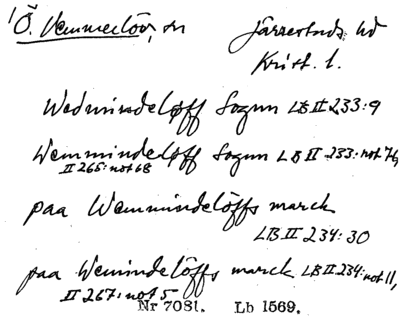 1) Ö. Vemmerlöv, sn
Järrestads hd
Krist. l.
Wedmindeløff Sognn LB II 233:9
Wemmindeløff Sogun LB II 233: not 76,
II 265: not 68
paa Wemmindelöffs marck
LB II 234: 30
paa Wemindelöffs marck LB II 234: not 11,
II 267: not 5
Nr 7081. Lb 1569.